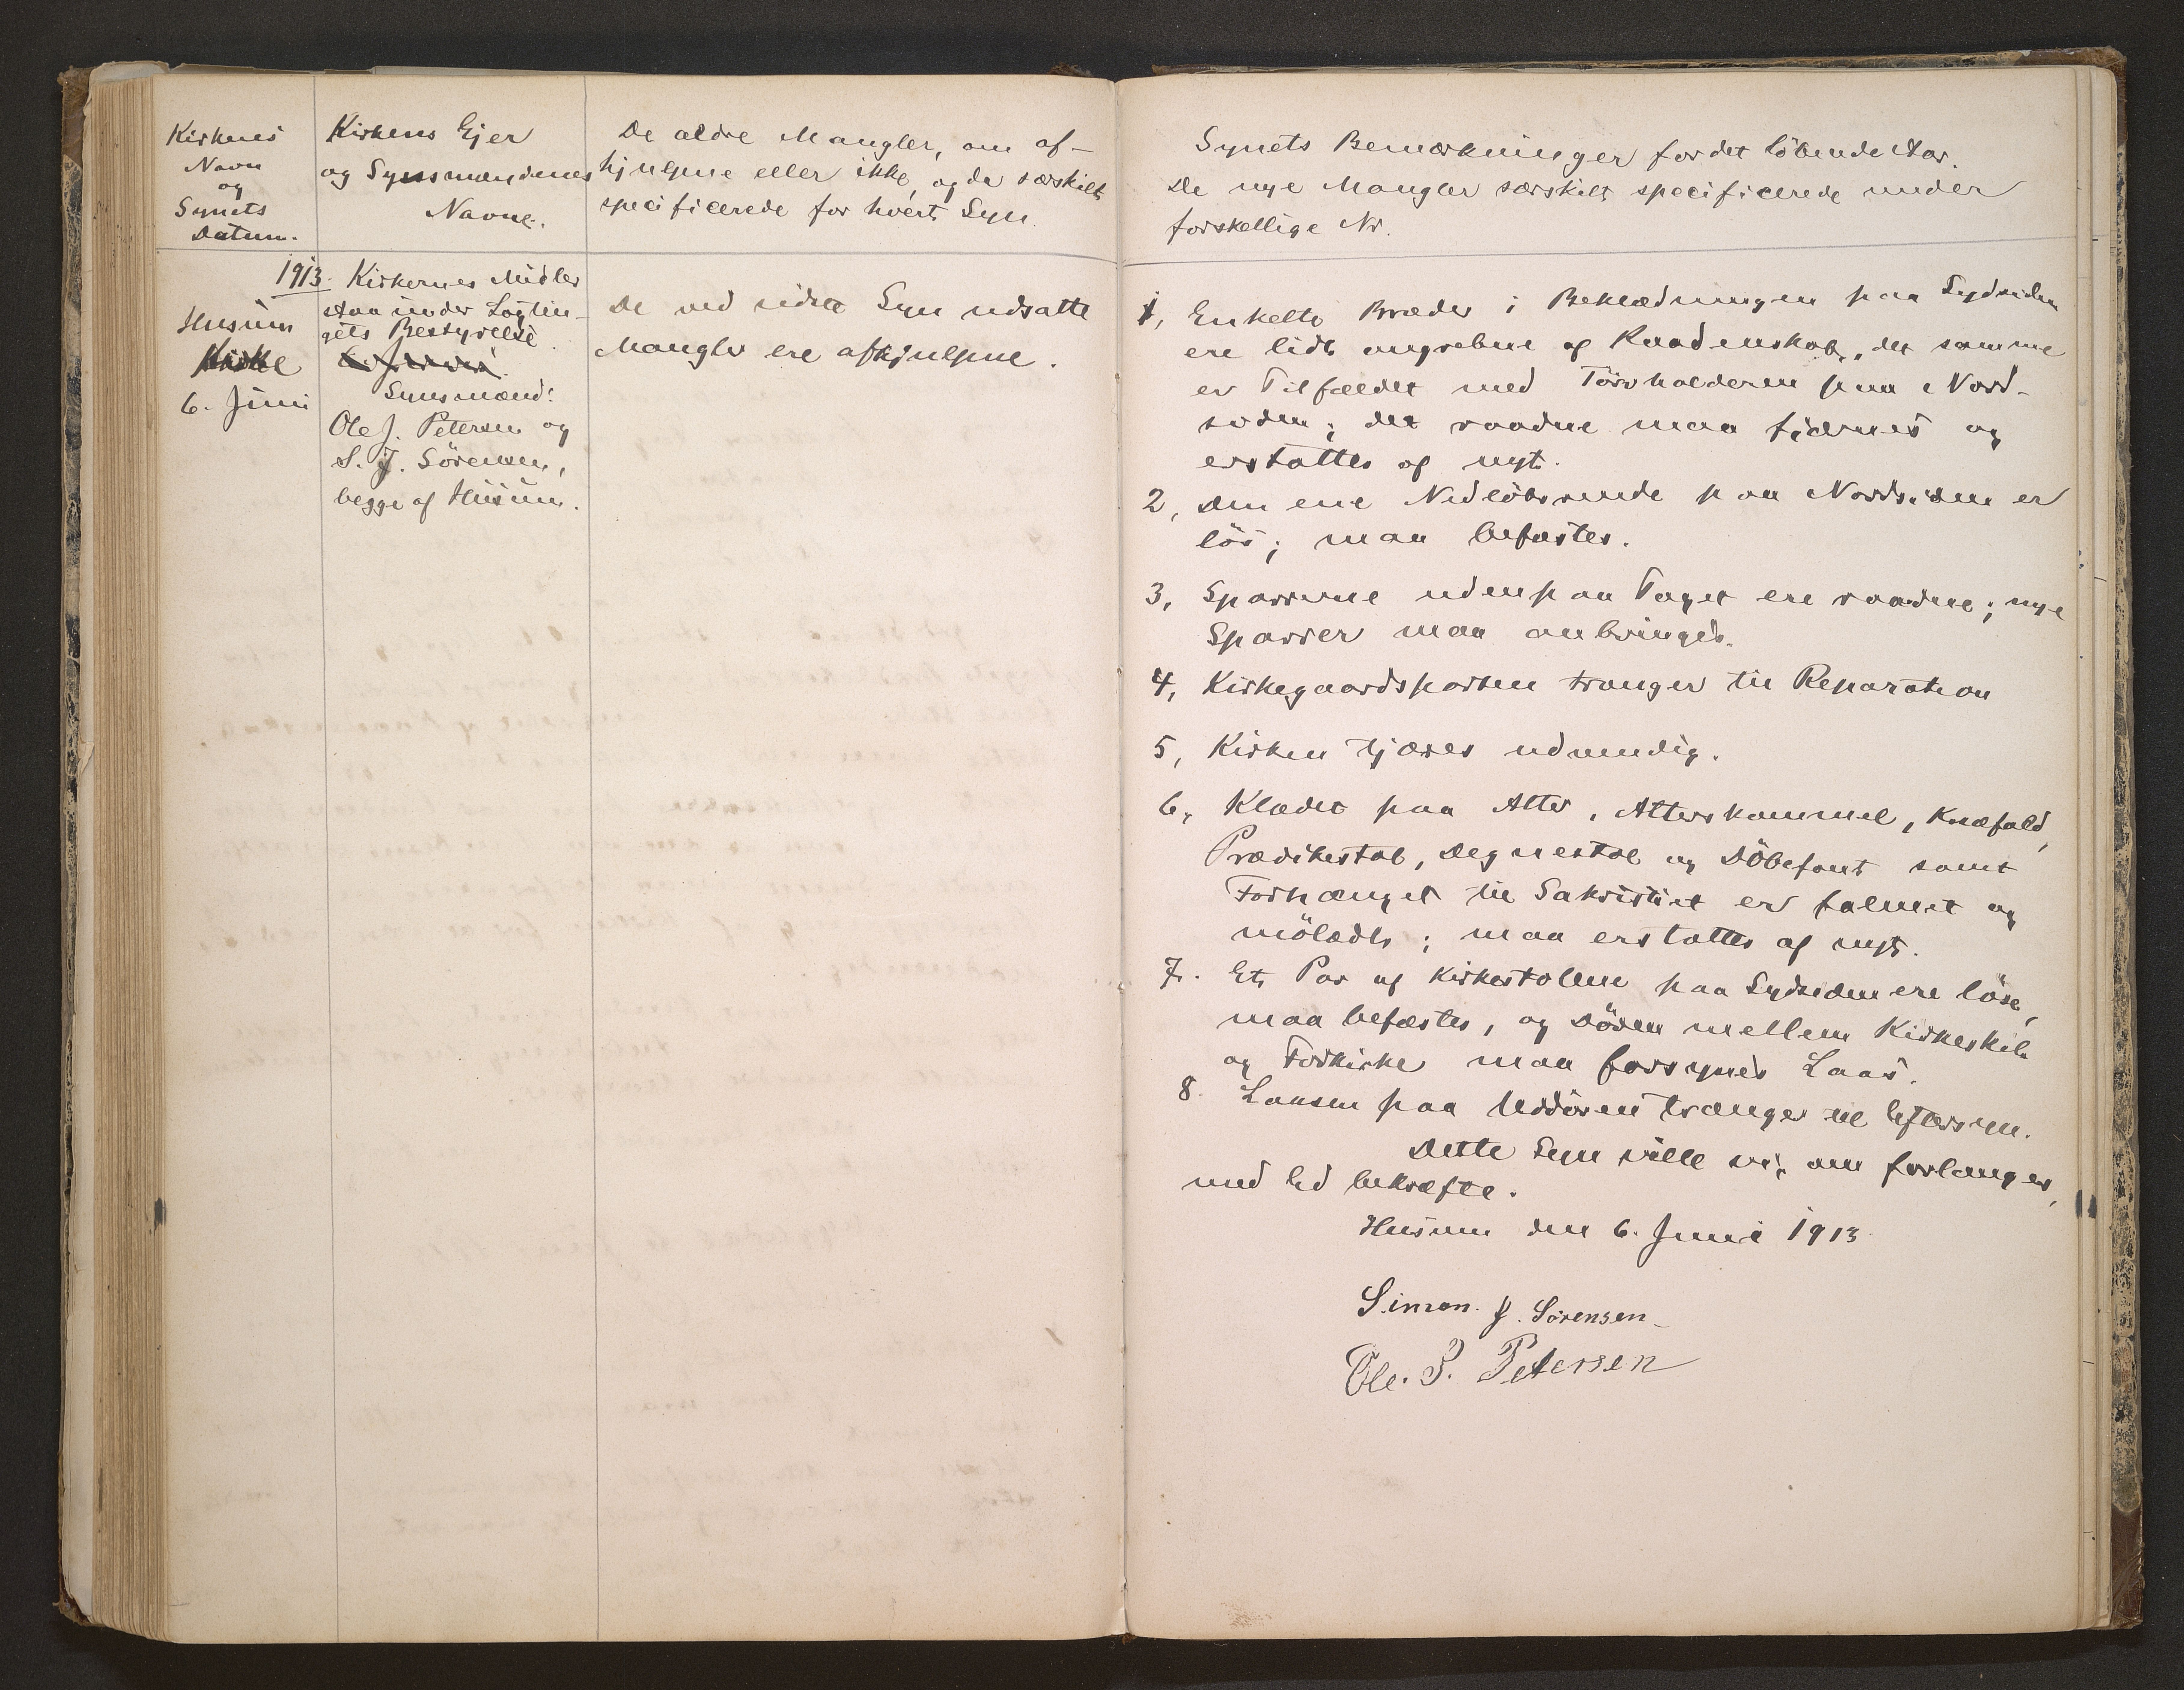 Kirkens
Navn
og
Synets
Datum.
Kirkens Ejer
og Synsmændenes
Navne.
De ældre Mangler, om af-
hjulpne eller ikke, og da særskilt
specificerede for hvert Syn.
1913.
Husum
Kirke
6. Juni
Kirkernes Midler
staa under Lagtin-
gets Bestyrelse.
Synsmænd:
Ole J. Petersen og
S. J. Sörensen,
begge af Husum.
De ved sidste Syn udsatte
Mangler ere afhjulpne.
Synets Bemærkninger for det löbende Aar.
De nye Mangler særskilt specificerede under
forskellige Nr.
1, Enkelte Bræder i Beklædningen paa Sydsiden
ere lidt angrebne af Raadenskab, det samme
er Tilfældet med Törvholderen paa Nord-
siden; det raadne maa fjærnes og
erstattes af nyt.
2, Den ene Nedlöbsrende paa Nordsiden er
lös; maa befæstes.
3, Sparrerne udenpaa Taget ere raadne; nye
Sparrer maa anbringes.
4, Kirkegaardsporten trænger til Reparation
5, Kirken tjæres udvendig.
6, Klædet paa Alter, Alterskammel, Knæfald,
Prædikestol, Degnestol og Döbefont samt
Forhænget til Sakristiet er falmet og
mölædt; maa erstattes af nyt.
7. Et Par af Kirkestolene paa Sydsiden ere löse,
maa befæstes, og Dören mellem Kirkeskib
og Forkirke maa forsynes Laas.
8. Laasen paa Uddören trænger til Eftersyn.
Dette Syn ville vi, om forlanges,
med Ed bekræfte.
Husum den 6. Juni 1913
Simon. J. Sörensen
Ole. J. Petersen